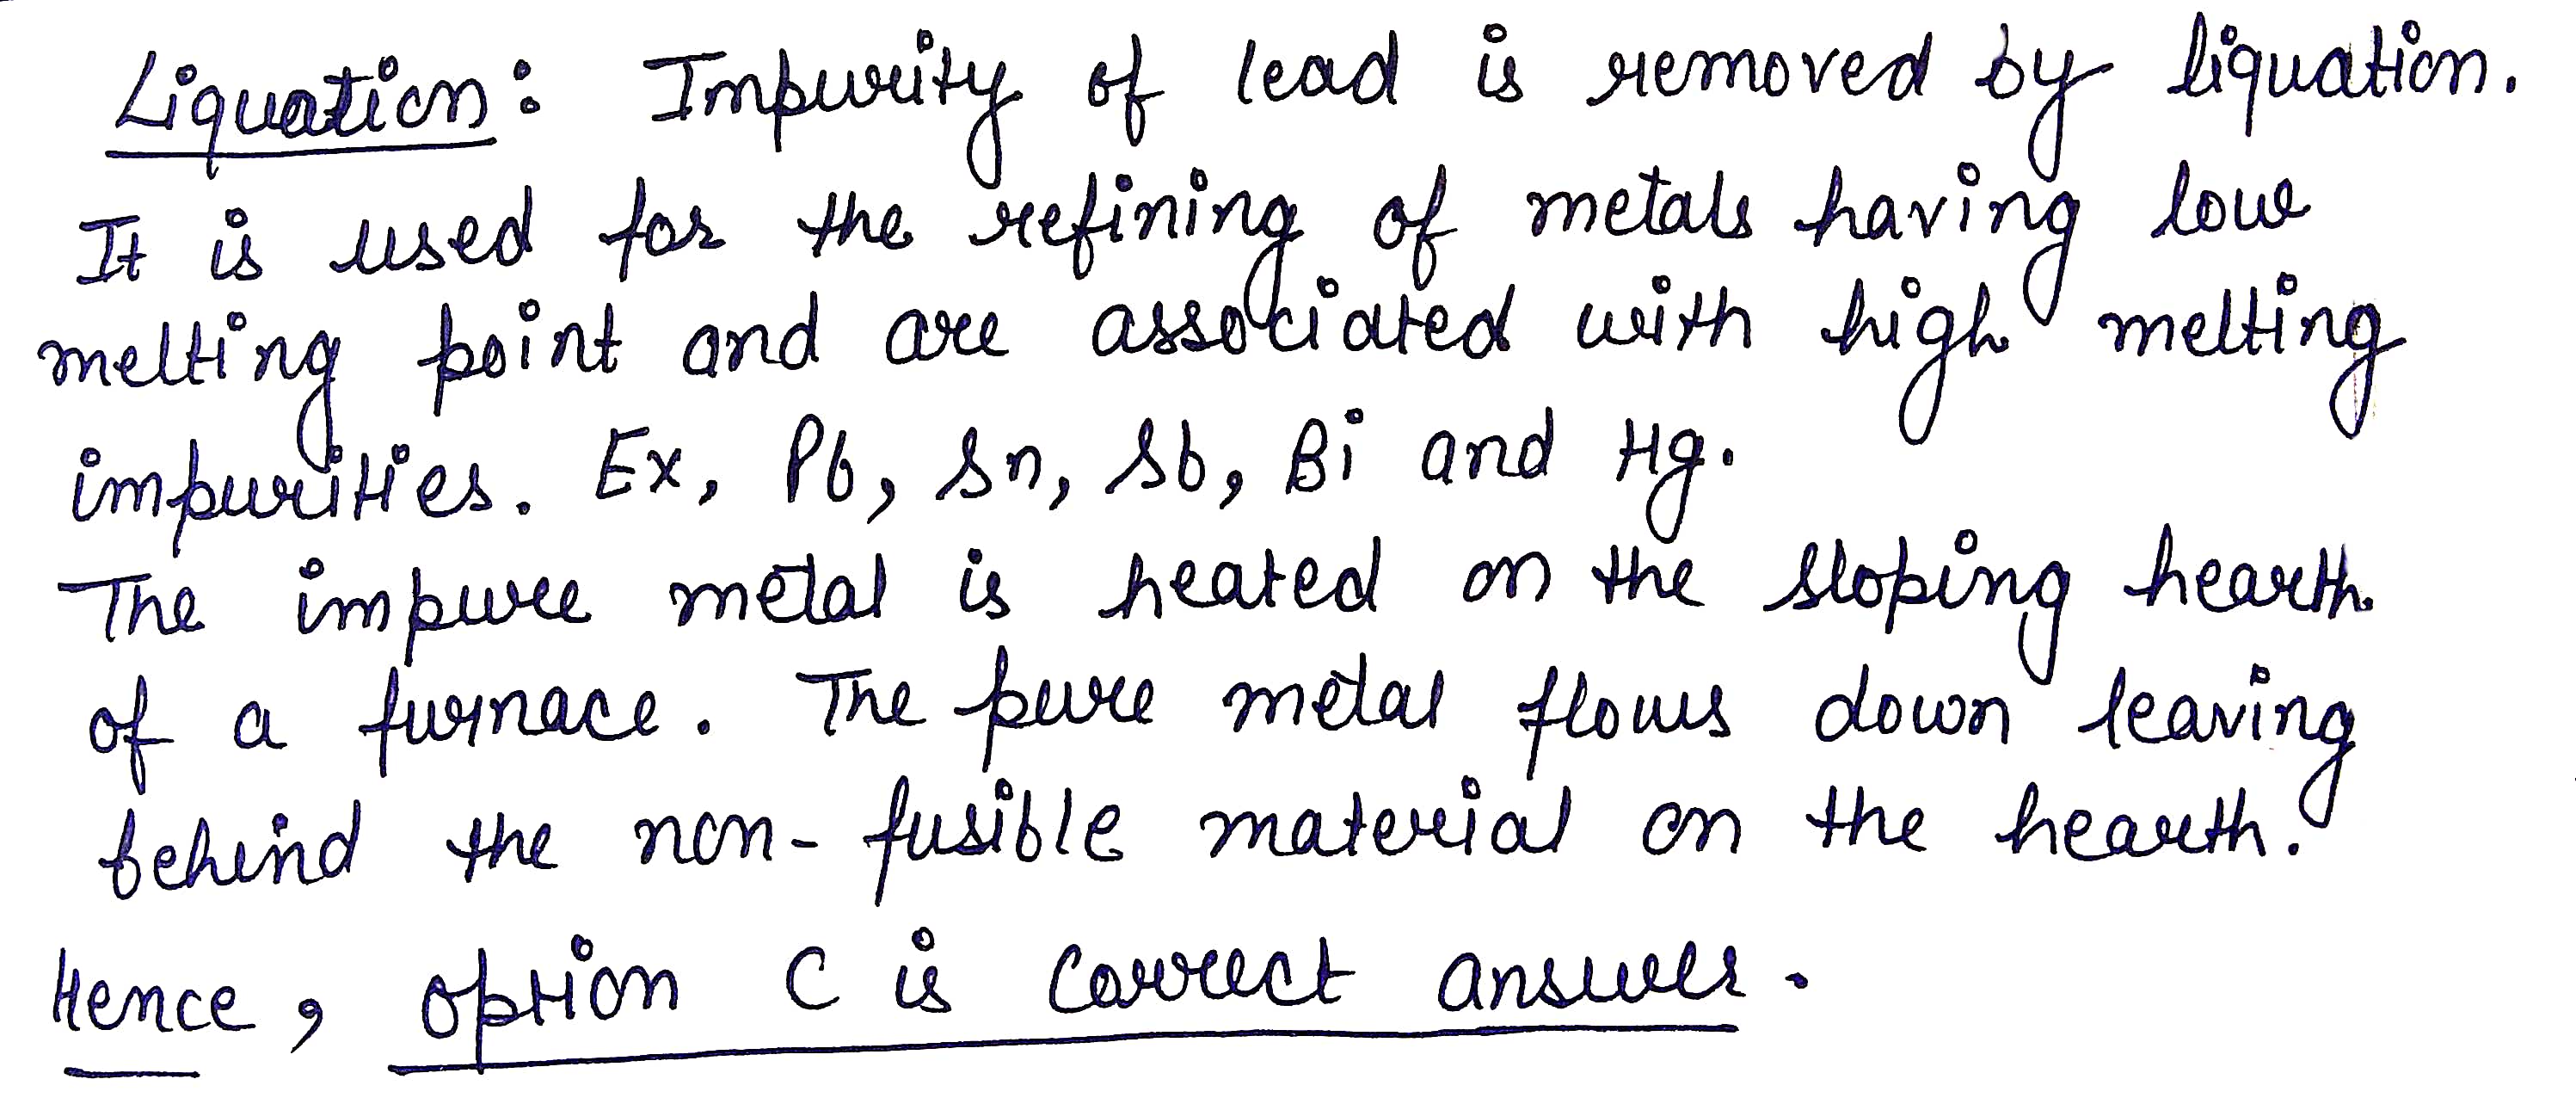 Liquation: Impurity of lead is removed by liquation.
It is used for the refining of metals having low
melting point and are associated with high melting
impurities. Ex, Pb, Sn, Sb, Bi and Hg.
The impure metal is heated on the sloping hearth
of a furnace. The pure metal flows down leaving
behind the non-fusible material on the hearth.
Hence, option C is correct answer.